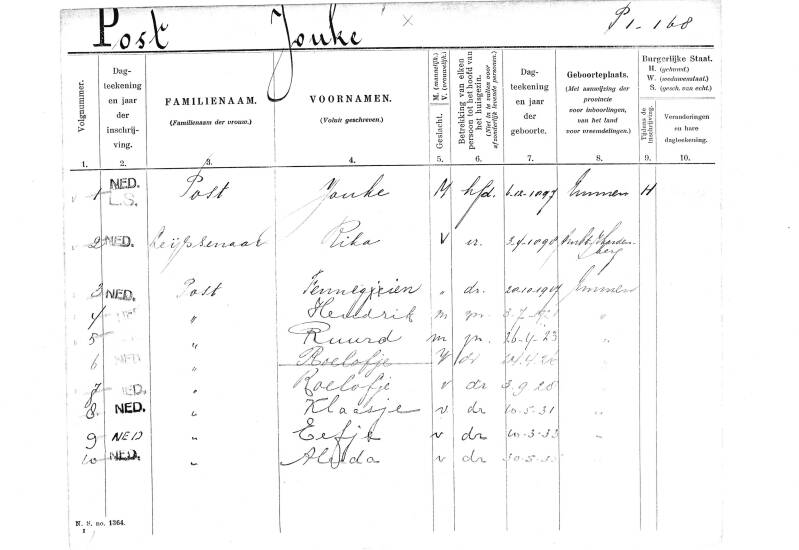 Post Jouke P1-168
Volgnummer.
Dag-
teekening
en jaar
der
inschrij-
ving.
FAMILIENAAM.
(Familienaam der vrouw.)
VOORNAMEN.
(Voluit geschreven.)
Geslacht.
M. (mannelijk.)
V. (vrouwelijk.)
Betrekking van elken
persoon tot het hoofd van
het huisgezin.
(Niet in te vullen voor
afzonderlijk levende personen.)
Dag-
teekening
en jaar
der
geboorte.
Geboorteplaats.
(Met aanwijzing der
provincie
voor inboorlingen,
van het land
voor vreemdelingen.)
Burgerlijke Staat.
H. (gehuwd.)
W. (weduwenstaat.)
S. (gesch. van echt.)
Tijdens de
inschrijving.
Veranderingen
en hare
dagteekening.
1. 2. 3. 4. 5. 6. 7. 8. 9. 10.
1 NED. L.S. Post Jouke M hfd. Emmen H
2 NED. Rika V
3 NED. Post dr. Emmen
4 " Hendrik m zn. "
5 " Ruurd m zn. 26-4-23 "
6 NED " Roelofje V dr "
7 NED. " Roelofje v dr 3.9.28 "
8 NED. " Klaasje v dr 10-5-31 "
9 NED " Eefje v dr 10-3-33 "
10 NED. " Alida v dr "
N. S. no. 1364.